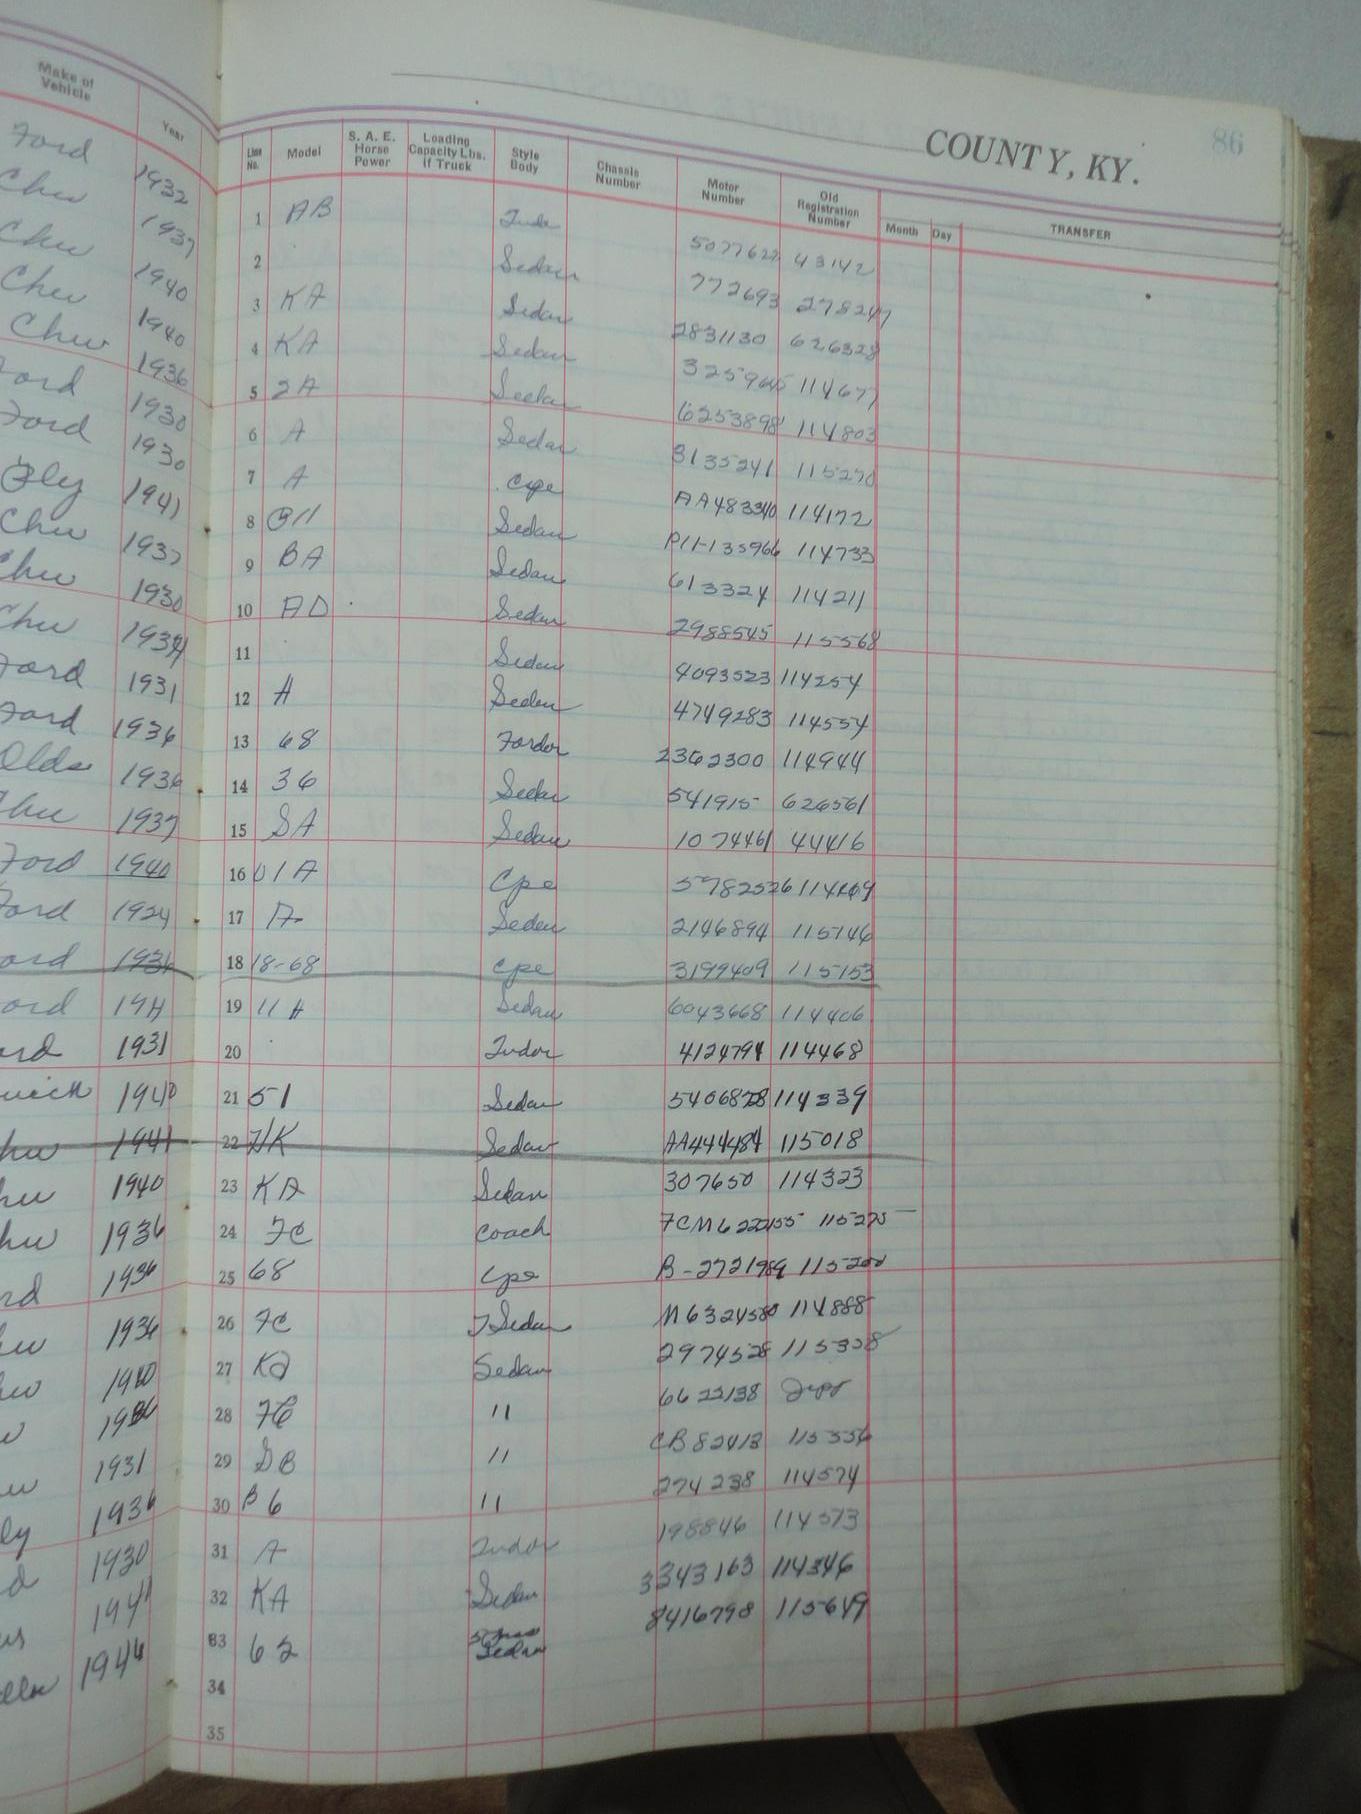 Make of Vehicle Year
COUNTY, KY. 86
Line No. Model S. A. E. Horse Power Loading Capacity Lbs. if Truck Style Body Chassis Number Motor Number Old Registration Number Month Day TRANSFER
Ford 1932 1 AB 43142
Chev 1937 2 Sedan 772693 278247
Chev 1940 3 KA Sedan 2831130 626328
Chev 1940 4 KA Sedan 114677
Chev 1936 5 2A Sedan 6253898 114803
Ford 1930 6 A Sedan 3135241 115270
Ford 1930 7 A Cpe AA483340 114172
Ply 1941 8 Sedan P11-135966 114733
Chev 1937 9 BA Sedan 613324 114211
Chev 1930 10 AD Sedan 2988545 115568
Chev 11 Sedan 4093523 114254
Ford 1931 12 A Sedan 4749283 114554
Ford 1936 13 68 Fordor 2362300 114944
Olds 1936 14 36 Sedan 541915 626561
Chev 1937 15 SA Sedan 1074461 44416
Ford 1940 16 01A Cpe
Ford 1924 17 A Sedan 2146894 115146
1936 18 18-68 Cpe 3199409 115153
19 11A Sedan 6043668 114406
1931 20 Tudor 4124794 114468
1940 21 51 Sedan 114339
1941 22 Sedan AA444484 115018
1940 23 KA Sedan 307650 114323
1936 24 FC Coach
1936 25 68 Cpe
1936 26 FC T Sedan 114888
27 KA Sedan 2974528
28 FC " 6622138
1931 29 DB " CB82413 115556
1936 30 B6 " 274238 114574
1930 31 A Tudor 198846 114573
1941 32 KA Sedan 3343163 114346
1946 33 62 Sedan 8416798 115649
34
35